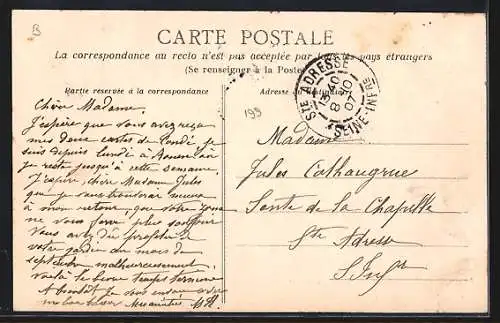 B
CARTE POSTALE
La correspondance au recto n'est pas acceptée par tous les pays étrangers
(Se renseigner à la Poste)
Partie réservée à la correspondance
Adresse du destinataire
STE ADRESSE
SEINE-INFRE
199
Chère Madame,
J'espère que vous avez reçu
mes deux cartes de Condé je
suis depuis lundi à
je reste jusqu'à cette semaine.
J'espère, chère Madame Jules
que je vous trouverai mieux
à mon retour, que votre
ne vous fera plus souffrir
Vous avez dû profiter de
votre jardin au mois de
septembre malheureusement
voilà le beau temps terminé
A bientôt je vous envoie avec
Madame
Jules Cathaugrue
Sente de la Chapelle
Ste Adresse
S. Infre